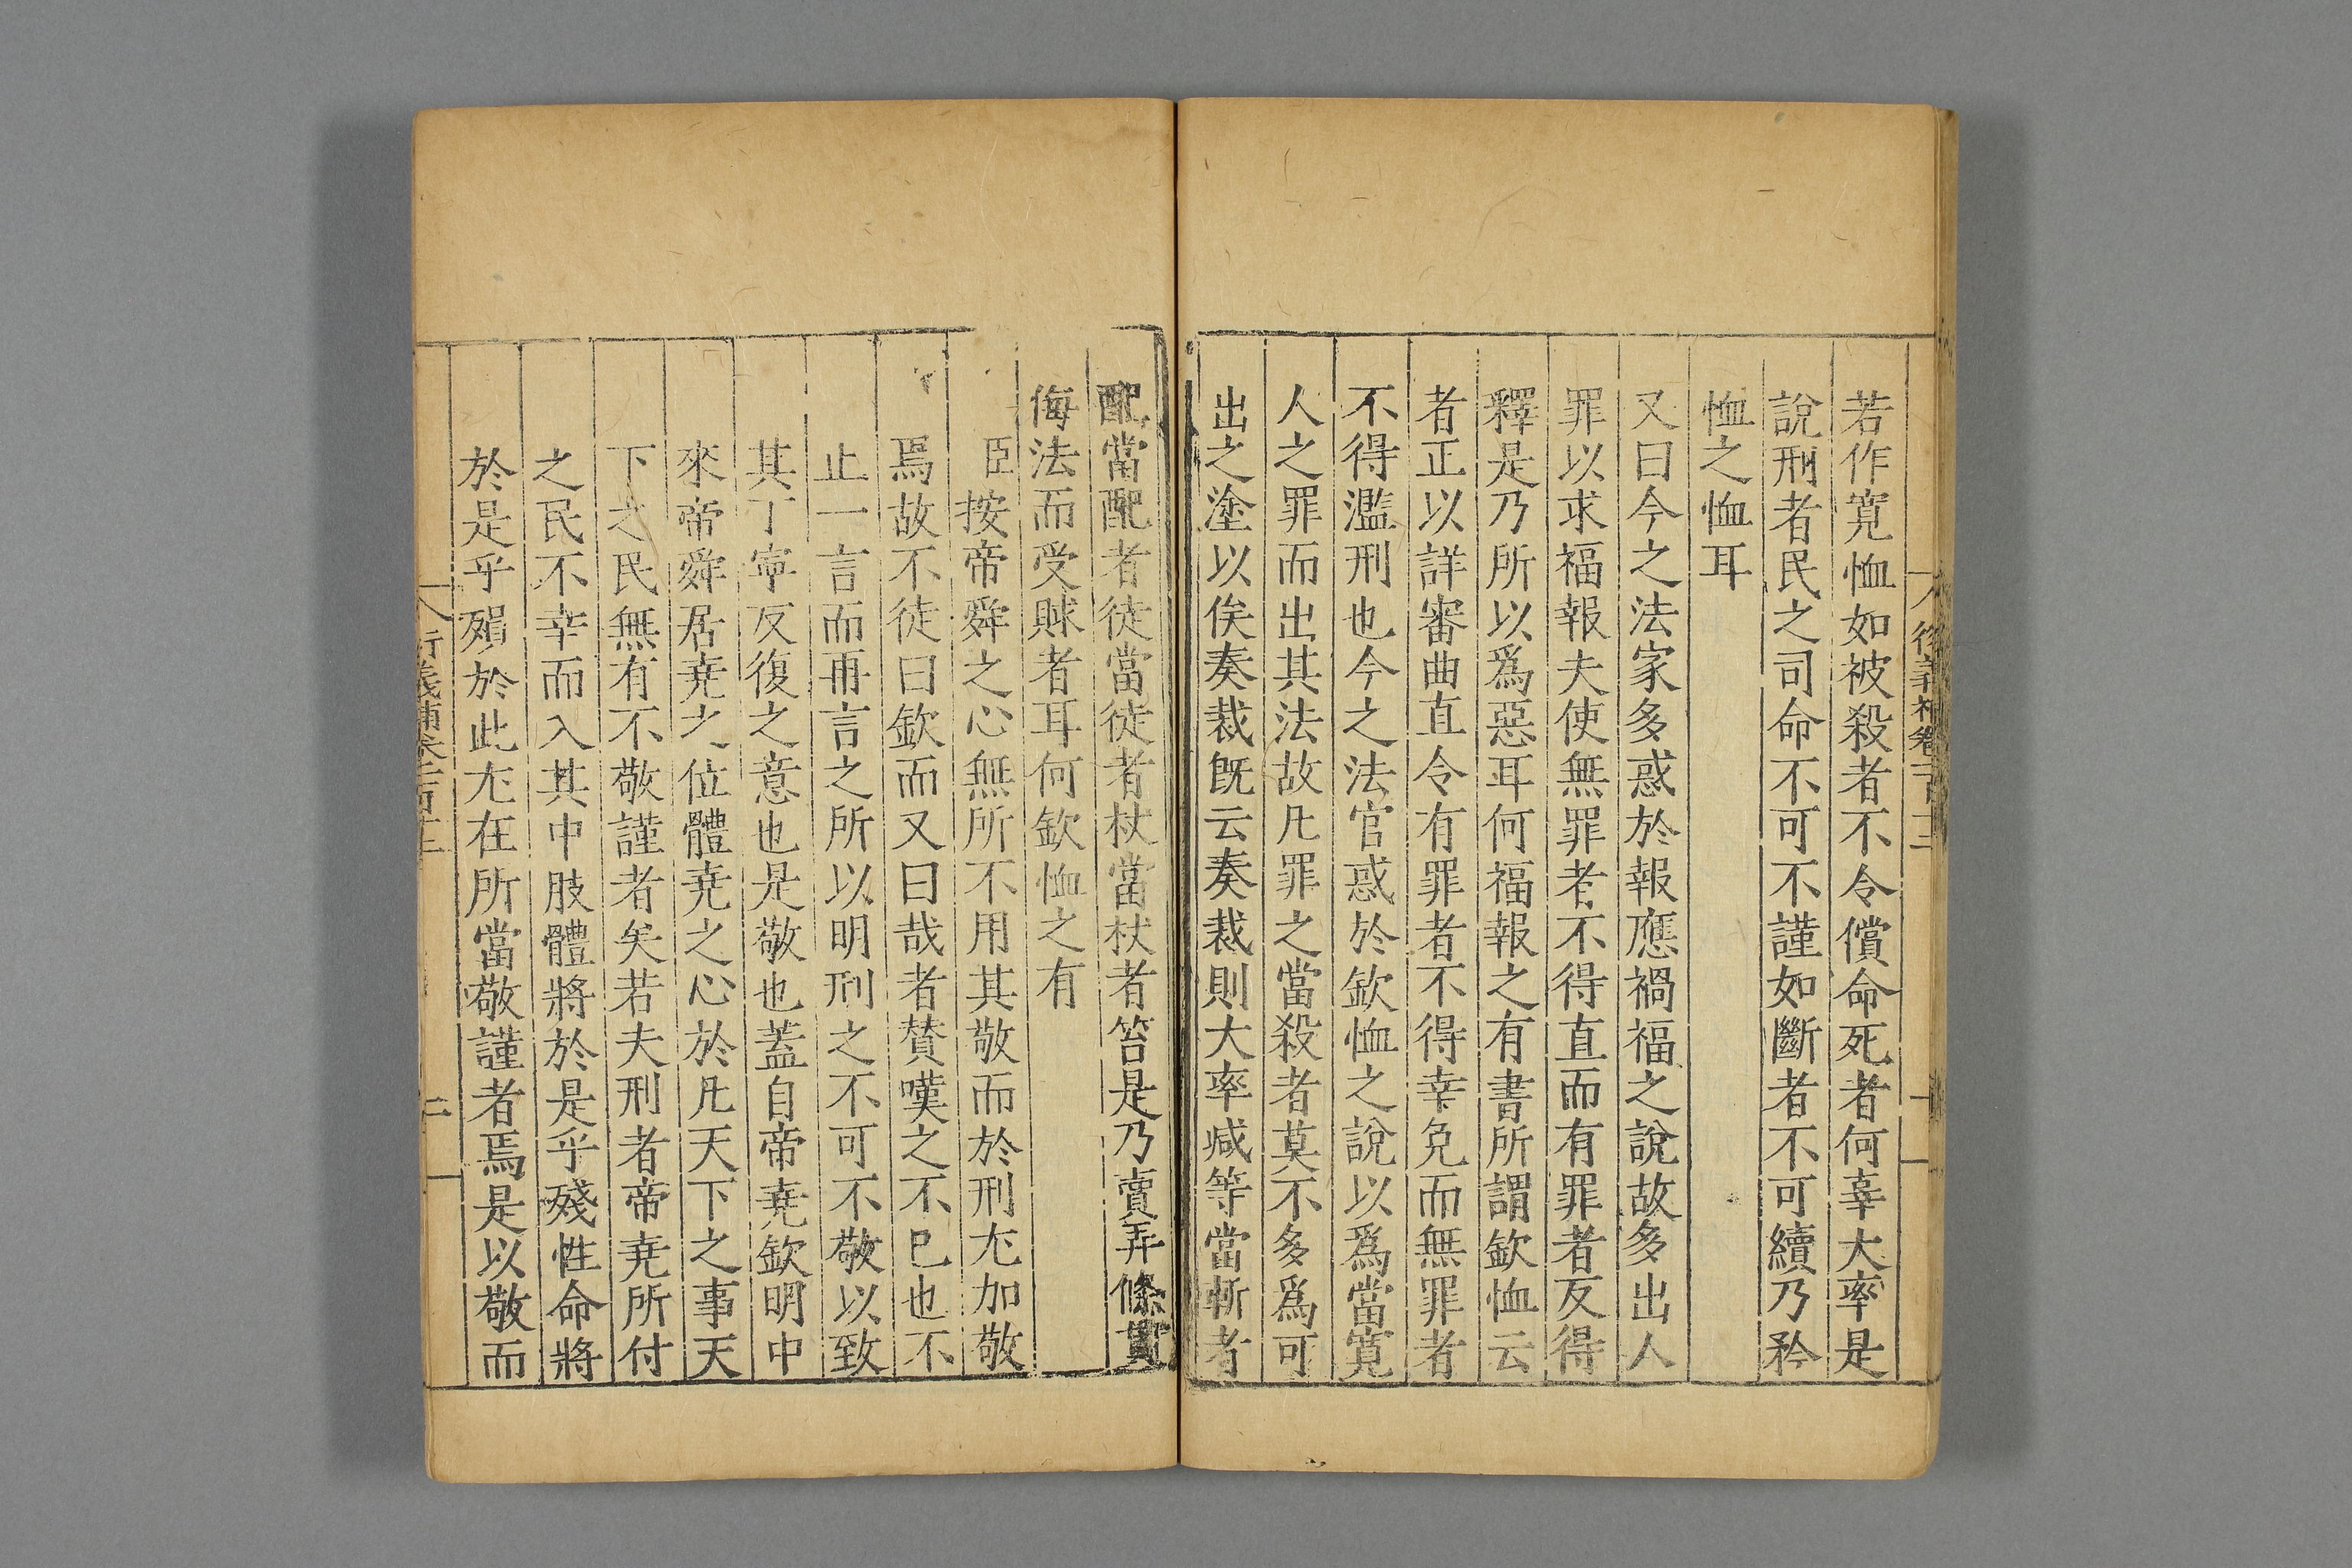 若作寛恤如被殺者不令償命死者何辜大率是
說刑者民之司命不可不謹如斷者不可續乃矜
恤之恤耳
又曰今之法家多惑於報應禍福之說故多出人
罪以求福報夫使無罪者不得直而有罪者反得
釋是乃所以爲惡耳何福報之有書所謂欽恤云
者正以詳審曲直令有罪者不得幸免而無罪者
不得濫刑也今之法官惑於欽恤之說以爲當寛
人之罪而出其法故凡罪之當殺者莫不多爲可
出之塗以俟奏裁旣云奏裁則大率減等當斬者
配當配者徒當徒者杖當杖者笞是乃賣弄條貫
侮法而受賕者耳何欽恤之有
臣按帝舜之心無所不用其敬而於刑尤加敬
焉故不徒曰欽而又曰哉者賛嘆之不已也不
止一言而再言之所以明刑之不可不敬以致
其丁寧反復之意也是敬也蓋自帝堯欽明中
來帝舜居堯之位體堯之心於凡天下之事天
下之民無有不敬謹者矣若夫刑者帝堯所付
之民不幸而入其中肢體將於是乎殘性命將
於是乎殞於此尤在所當敬謹者焉是以敬而
衍義補卷一百一
二